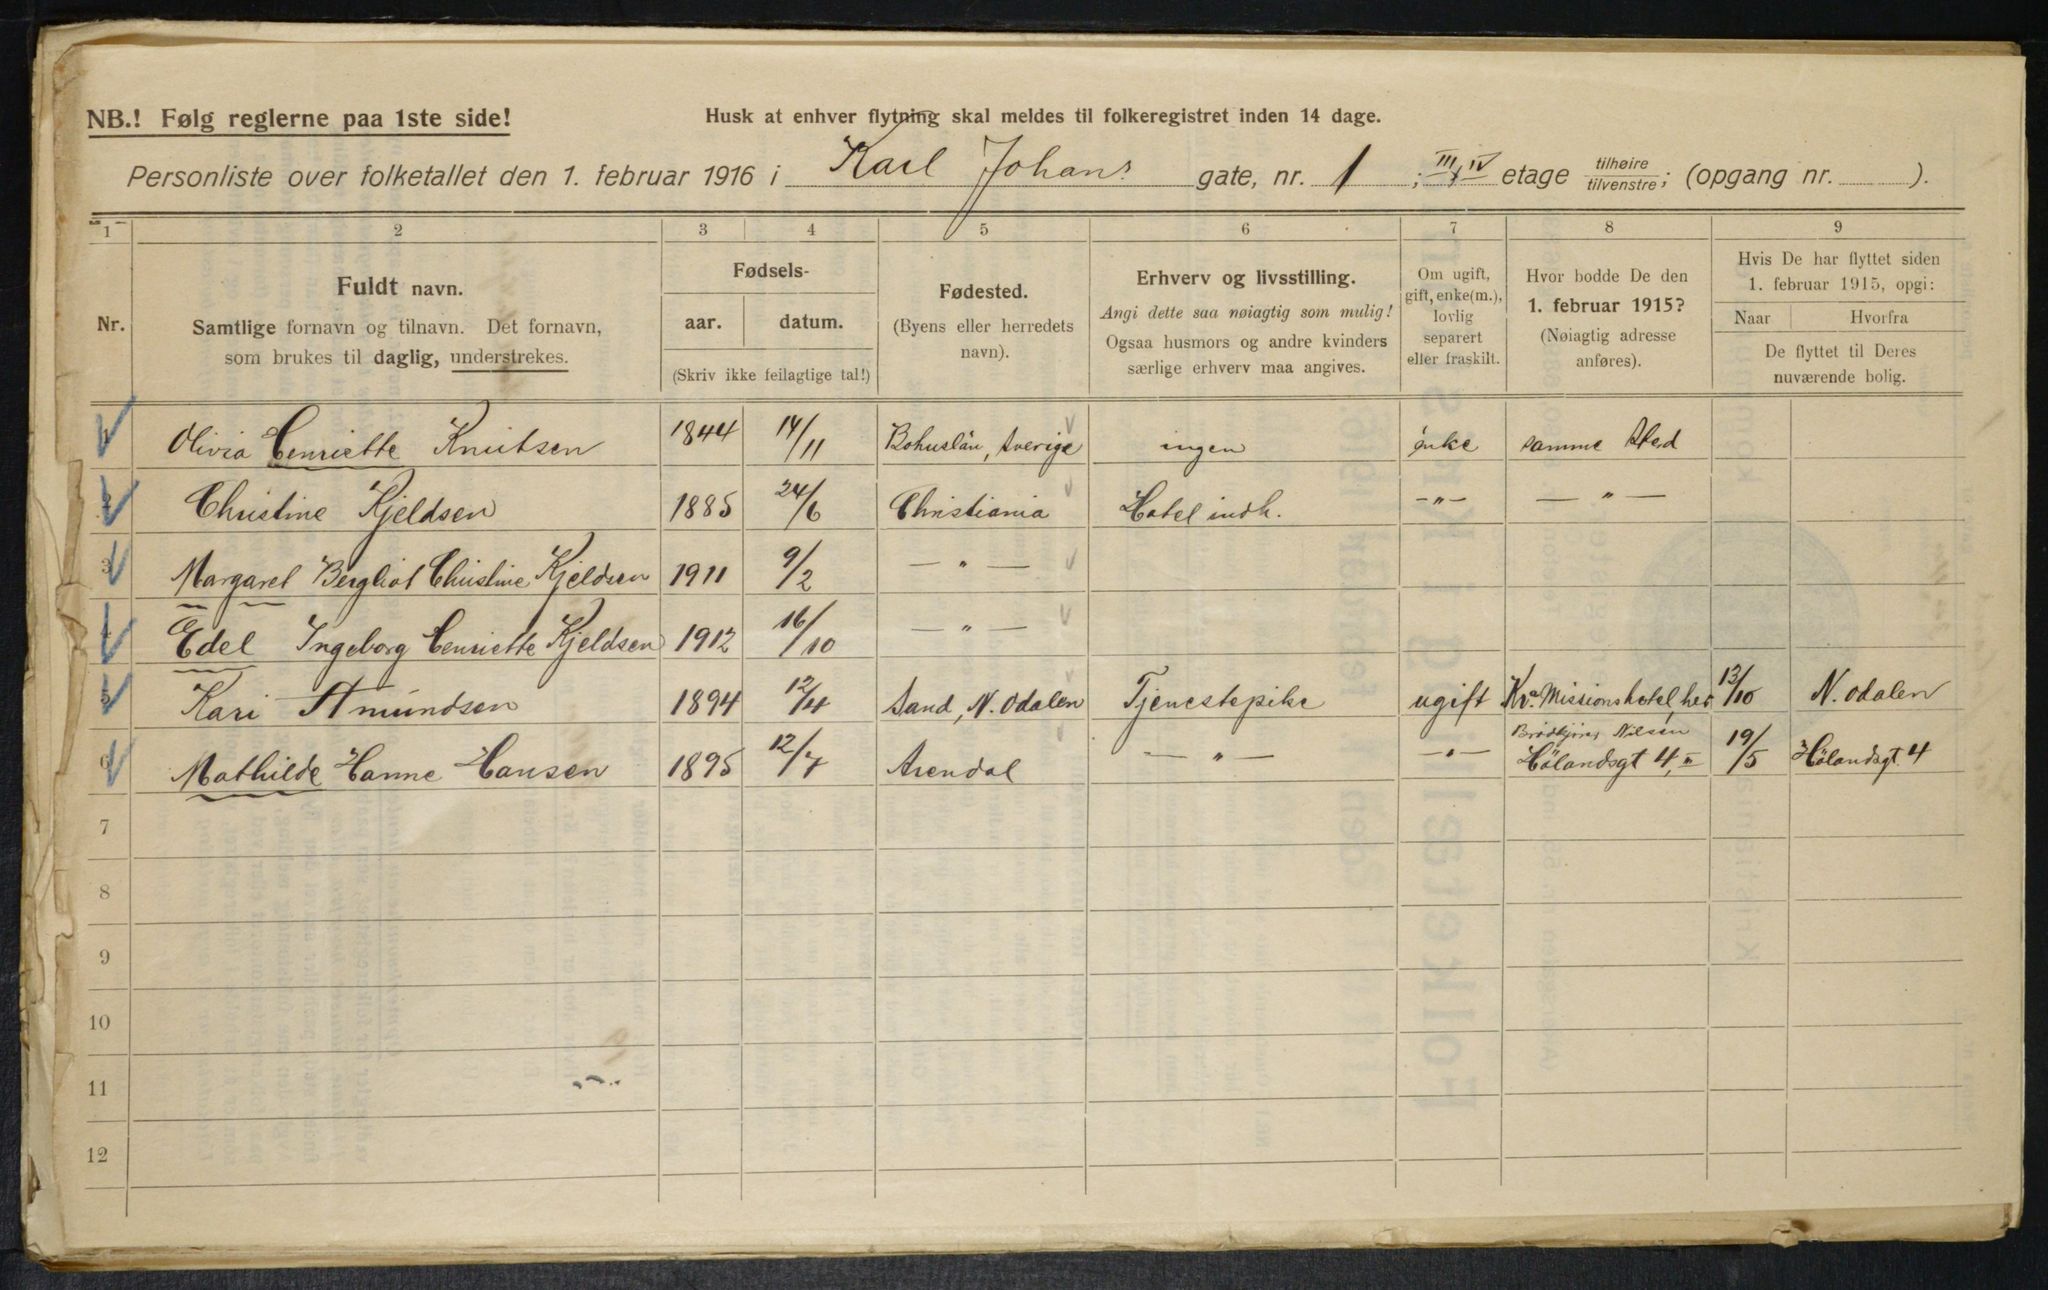 NB.! Følg reglerne paa 1ste side!
Husk at enhver flytning skal meldes til folkeregistret inden 14 dage.
Personliste over folketallet den 1. februar 1916 i Karl Johans gate, nr. 1; III & IV etage tilhøire/tilvenstre; (opgang nr. ).
1 2 3 4 5 6 7 8 9
Nr.
Fuldt navn.
Samtlige fornavn og tilnavn. Det fornavn,
som brukes til daglig, understrekes.
Fødsels-
aar. datum.
(Skriv ikke feilagtige tal!)
Fødested.
(Byens eller herredets
navn).
Erhverv og livsstilling.
Angi dette saa nøiagtig som mulig!
Ogsaa husmors og andre kvinders
særlige erhverv maa angives.
Om ugift,
gift, enke(m.),
lovlig
separert
eller fraskilt.
Hvor bodde De den
1. februar 1915?
(Nøiagtig adresse
anføres).
Hvis De har flyttet siden
1. februar 1915, opgi:
Naar Hvorfra
De flyttet til Deres
nuværende bolig.
1 Olivia Henriette Knutsen 1844 14/11 Bohuslän, Sverige ingen enke samme Sted
2 Christine Kjeldsen 1885 24/6 Christiania Hotel indh. — " — — " —
3 Margaret Bergliot Christine Kjeldsen 1911 9/2 — " —
4 Edel Ingeborg Henriette Kjeldsen 1912 16/10 — " —
5 Kari Amundsen 1894 12/4 Sand, N. Odalen Tjenestepike ugift Kr.a Missionshotel, her 13/10 N. Odalen
6 Mathilde Hanne Hansen 1895 12/7 Arendal — " — — " — Nilsen
Hölandsgt 4, II 19/5 Hölandsgt. 4
7
8
9
10
11
12